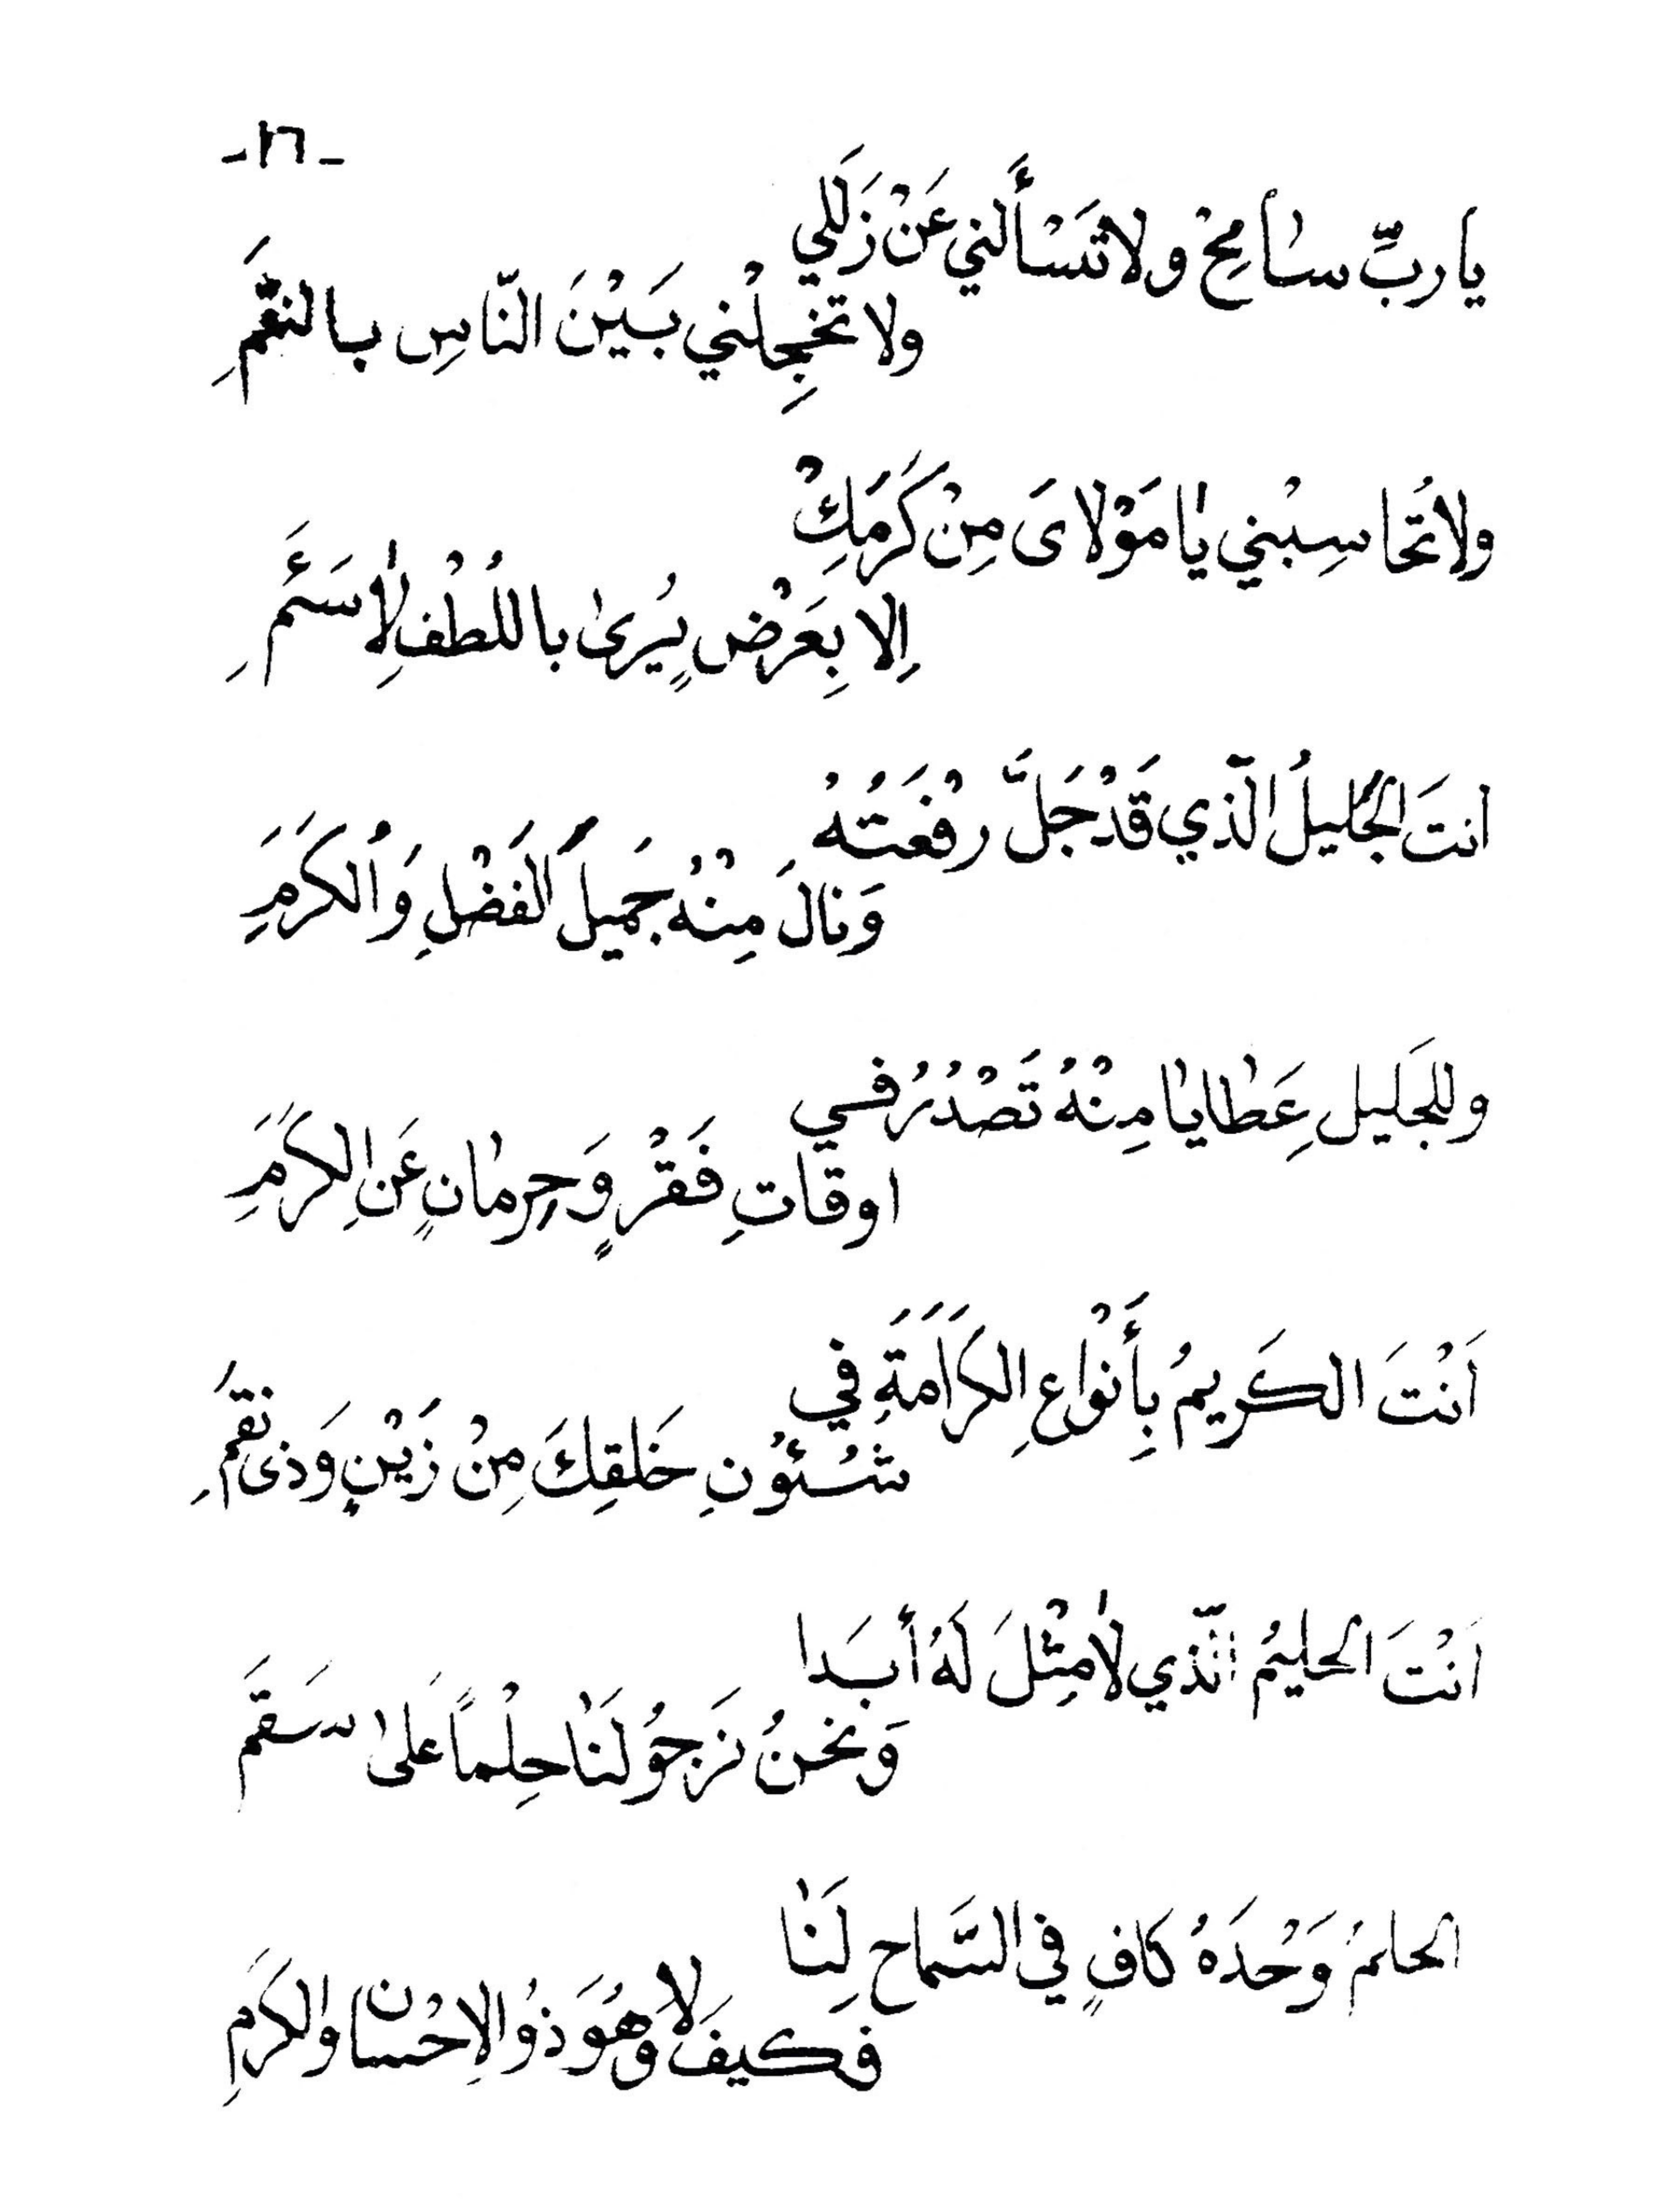 -١٦-
يا ربِّ سامِحْ ولا تَسْأَلني عَنْ زَلَلي
ولا تخجِلْني بَيْنَ النّاسِ بالنقَمِ
ولا تُحاسِبْني يا مَوْلاىَ مِنْ كَرَمِكْ
اِلا بِعَرْضٍ يُرىٰ باللُطْفِ لاٰ سَئَمِ
انتَ الجَليلُ الّذي قَدْ جَلَّ رِفْعَتُهُ
وَنالَ مِنْهُ جَميلَ الفَضْلِ وَالكَرَمِ
وللجَليلِ عَطايا مِنْهُ تَصْدُرُ في
اوقاتِ فَقْرٍ وَحِرمانٍ عَنِ الكَرَمِ
اَنْتَ الكَريمُ بِأَنْواعِ الكَرَامَةِ في
شُئوُنِ خَلقِكَ مِنْ زَيْنٍ وَذى نقَمِ
اَنْتَ الحليمُ الّذي لاٰ مِثْلَ لَهُ أبَدا
وَنحنُ نَرجوُ لَنٰا حِلْماً عَلىٰ سَقَم
الحلمُ وَحْدَهُ كافٍ في السَّماحِ لِنَا
فكيفَ لاٰ وهُوَ ذوُ الاِحْسان والكَرَمِ